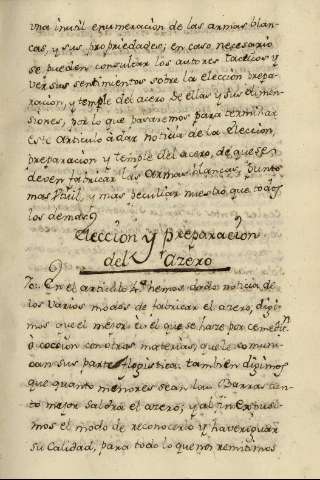 una inutil enumeracion de las armas blan-
cas, y sus propriedades; en caso necesario
se pueden consultar los autores tacticos y
ver sus sentimientos sobre la eleccion prepa-
racion, y temple del acero de ellas y sus dimen-
siones, por lo que pasaremos para terminar
este articulo à dar noticia de la eleccion,
preparacion y temple del acero, de que se
deven fabricar las armas blancas, punto
mas util, y mas peculiar nuestro que todos
los demas
Eleccion y preparacion
del azero
70. En el articulo 4º hemos dado noticia de
los varios modos de fabricar el azero, digi-
mos que el mejor es el que se haze por cemen
o coccion con otras materias, que le comuni-
can sus partes flogisticas: tambien digimos
que quanto menores sean las Barras tan-
to mejor saldrà el azero; y al fin expusi-
mos el modo de reconocerlo y haveriguar
su calidad, para todo lo que nos remitimos